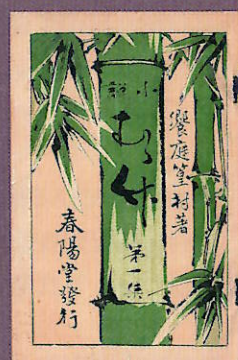 饗庭篁村著
小說
むら竹
第一集
春陽堂發行